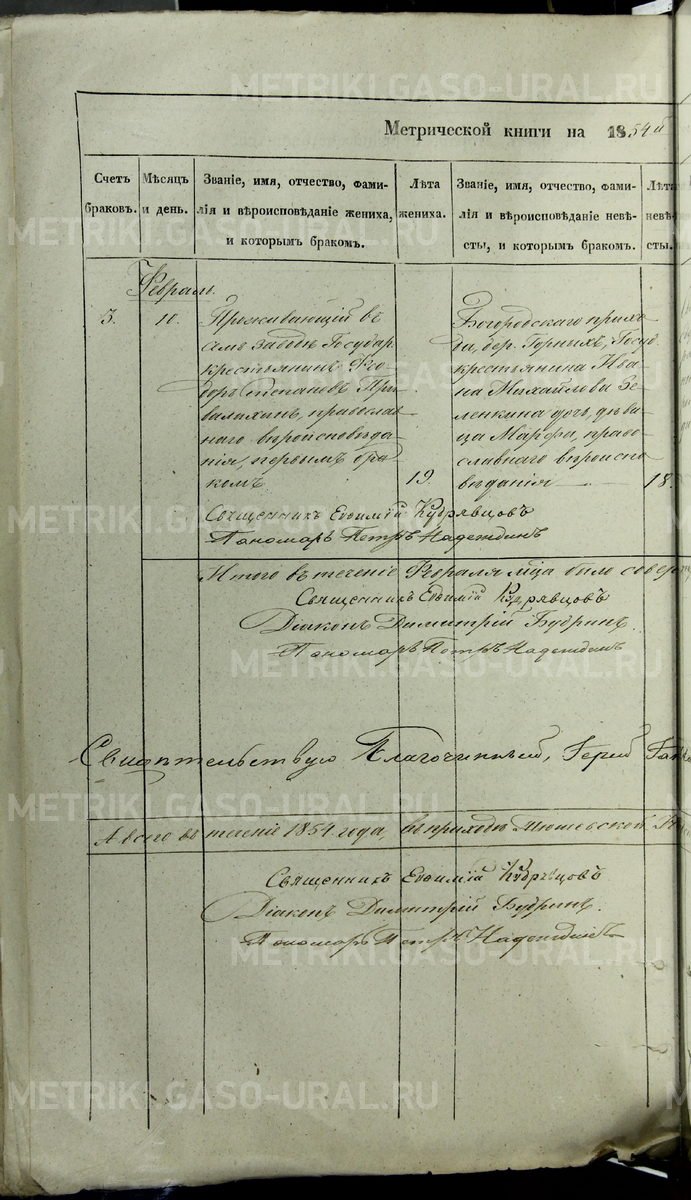 Метрической книги на 1854й
Счетъ браковъ.
Мѣсяцъ и день.
Званіе, имя, отчество, фами-
лія и вѣроисповѣданіе жениха,
и которымъ бракомъ.
Лѣта жениха.
Званіе, имя, отчество, фами-
лія и вѣроисповѣданіе невѣ-
сты, и которымъ бракомъ.
Лѣта невѣ-
сты.
Февраль.
3.
10.
Проживающій въ
семъ заводѣ Государ.
крестьянинъ Ѳео-
доръ Степановъ
православ-
наго вѣроисповѣда-
нія, первымъ бра-
комъ
19.
Богородскаго прихо-
да, дер. Горныхъ, Госуд.
крестьянина Ива-
на Михайлова Зе-
ленкина дочь, дѣви-
ца Марѳа, право-
славнаго вѣроиспо-
вѣданія
18.
Священникъ Евѳимій Кудрявцовъ
Пономарь Петръ Надеждинъ
Итого въ теченіе Февраля мца было совер
Священникъ Евѳимій Кудрявцовъ
Діаконъ Димитрій Будринъ.
Пономарь Петръ Надеждинъ
Свидѣтельствую Благочинный, Іерей
А всего въ теченіе 1854 года, въ приходѣ
Священникъ Евѳимій Кудрявцовъ
Діаконъ Димитрій Будринъ.
Пономарь Петръ Надеждинъ
METRIKI.GASO-URAL.RU